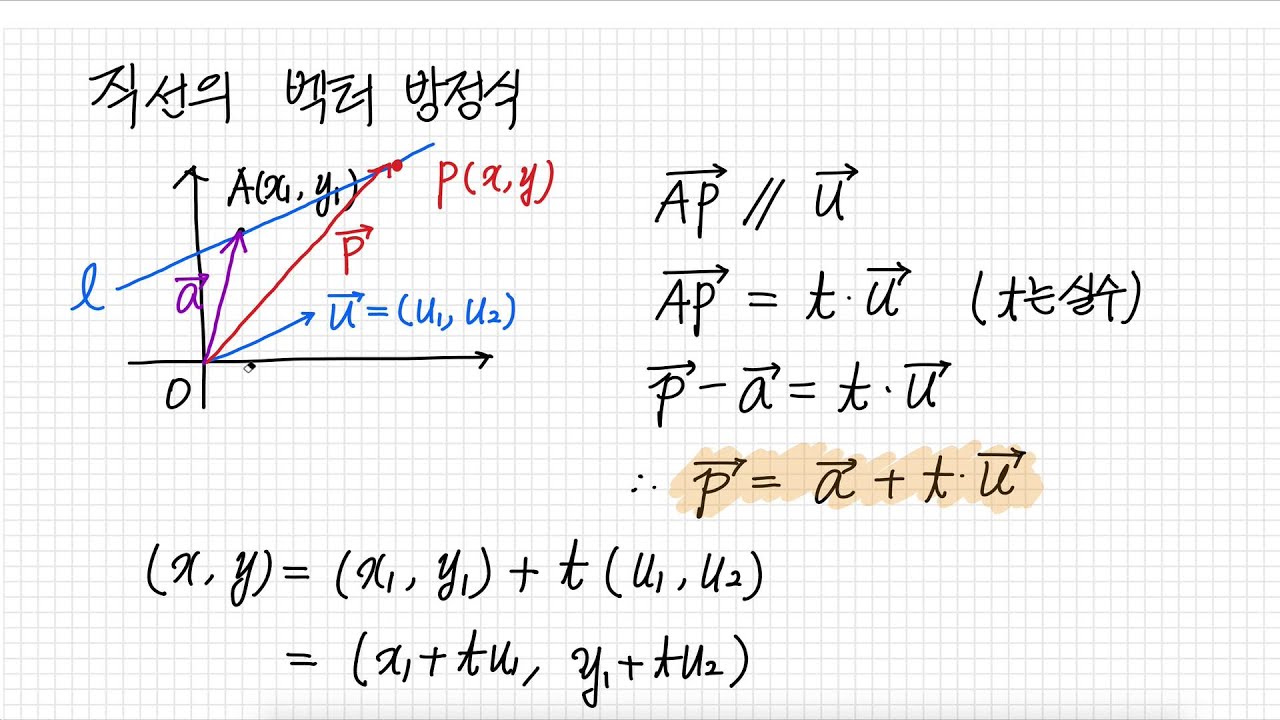 직선의 벡터 방정식
A(x₁, y₁)
P(x, y)
p⃗
l
a⃗
u⃗ = (u₁, u₂)
O
AP⃗ // u⃗
AP⃗ = t · u⃗ (t는 실수)
p⃗ - a⃗ = t · u⃗
∴ p⃗ = a⃗ + t · u⃗
(x, y) = (x₁, y₁) + t (u₁, u₂)
= (x₁ + tu₁, y₁ + tu₂)